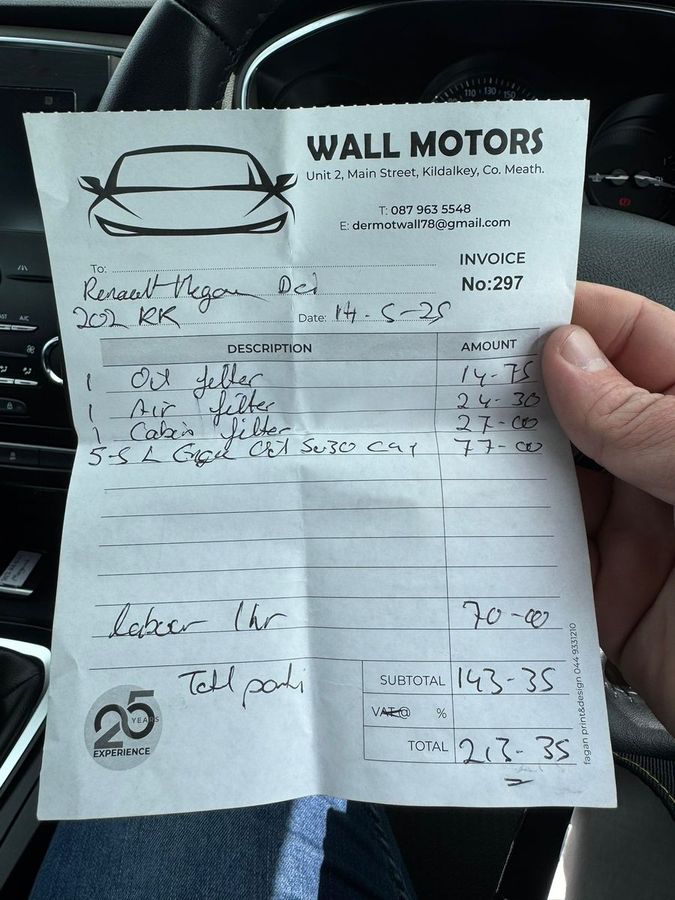 WALL MOTORS
Unit 2, Main Street, Kildalkey, Co. Meath.
T: 087 963 5548
E: dermotwall78@gmail.com
INVOICE
No:297
To:
Renault Megan Dci
202 RK
Date: 14-5-25
DESCRIPTION AMOUNT
1 Oil filter 14-75
1 Air filter 24-30
1 Cabin filter 27-00
5-5 L Engine Oil 5w30 77-00
Labour 1hr 70-00
Total parts
SUBTOTAL 143-35
VAT@ %
TOTAL 213-35
25 YEARS
EXPERIENCE
fagan print&design 044 9331210
110 130 150